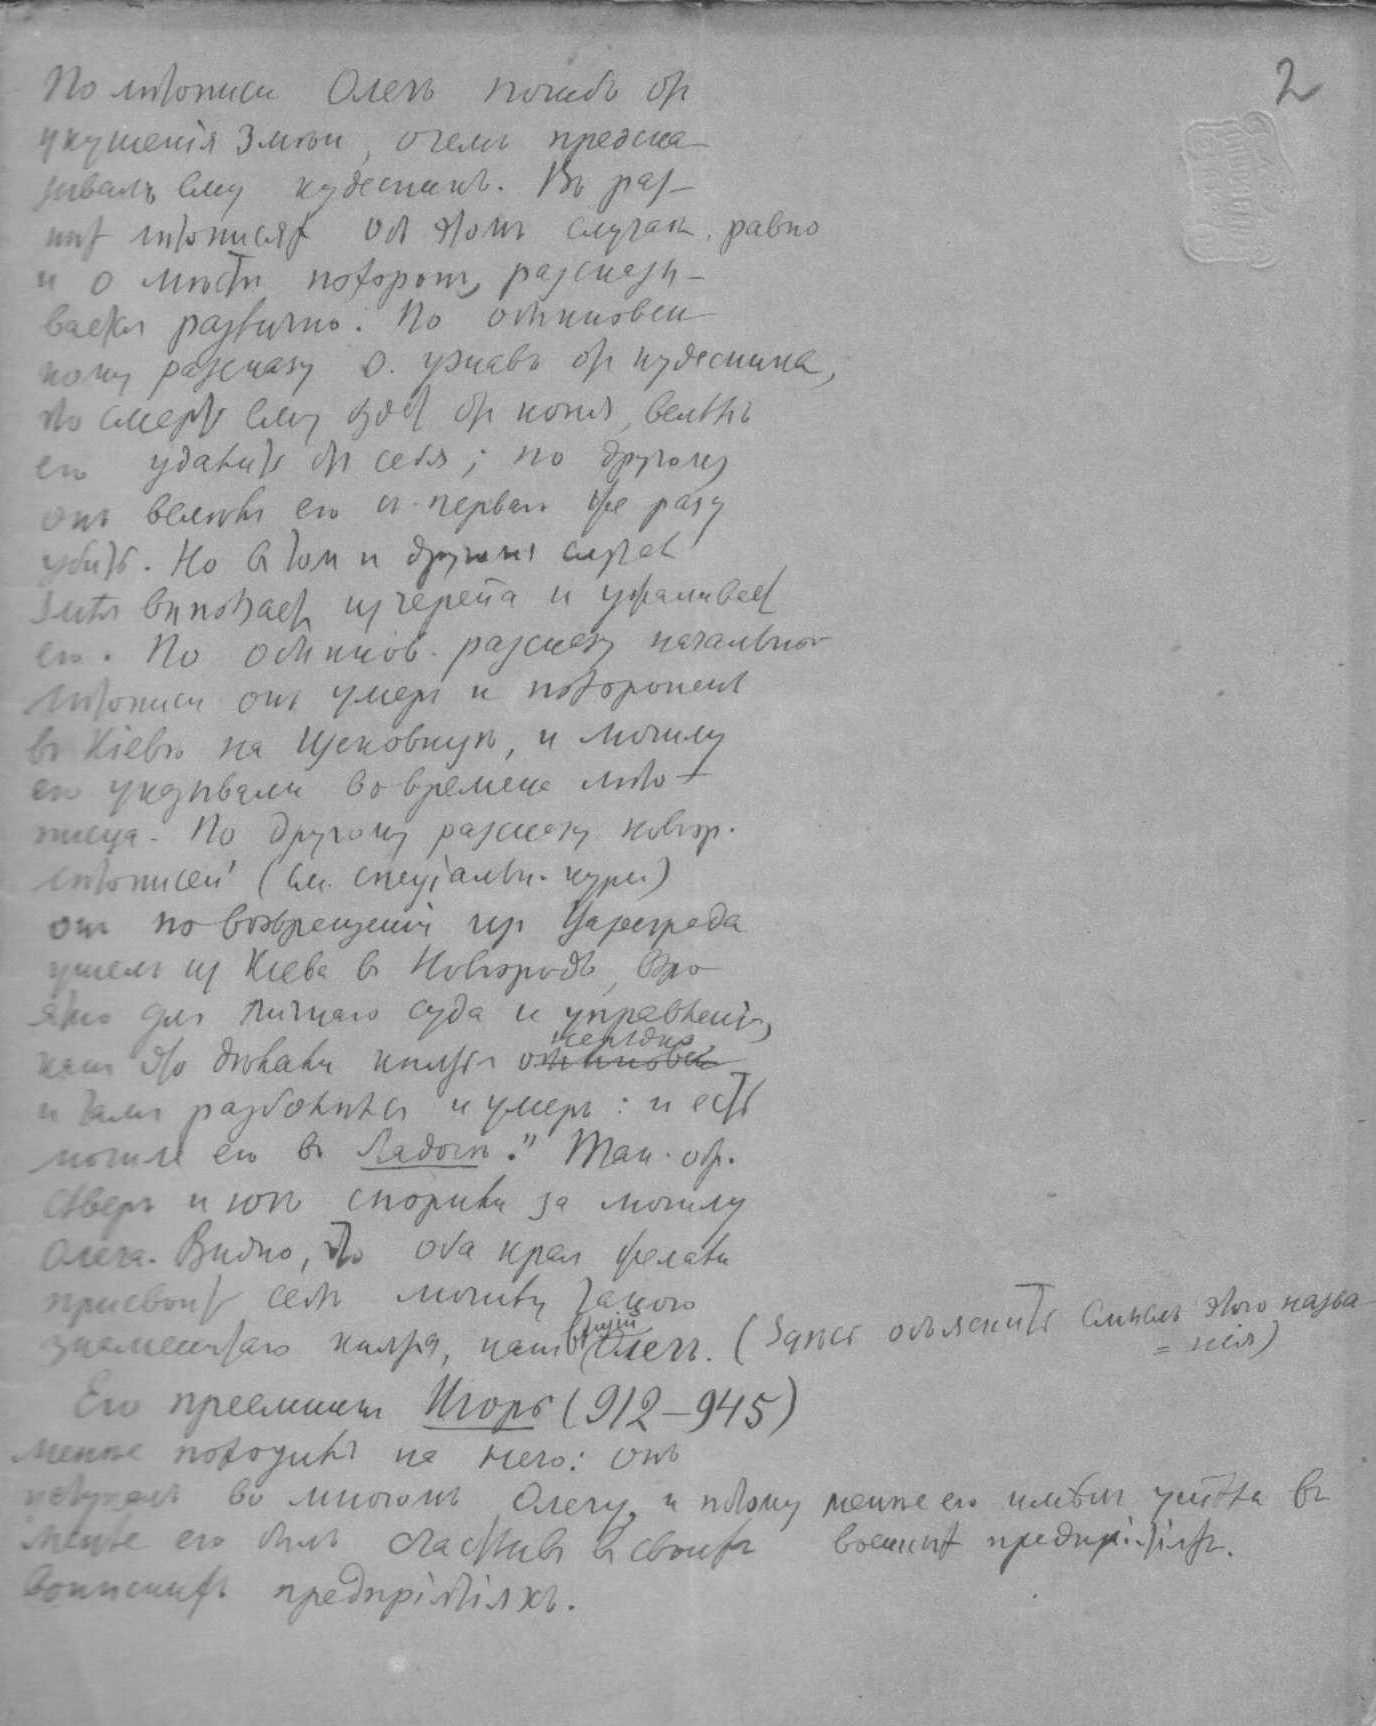 2
По лѣтописи Олегъ погибъ отъ
укушенія змѣи, о чемъ предска-
зывалъ ему кудесникъ. Въ раз-
ныхъ лѣтописяхъ объ этомъ случаѣ, равно
и о мѣстѣ похоронъ, разсказы-
вается различно. По обыкновен-
ному разсказу О. узнавъ отъ кудесника,
что смерть ему будетъ отъ коня, велѣлъ
его удалить отъ себя; по другому
онъ велѣлъ его съ перваго же разу
убить. Но в том и другомъ случаѣ
змѣя выползаетъ изъ черепа и ужаливаетъ
его. По обыкнов. разсказу начальной
лѣтописи онъ умеръ и похороненъ
въ Кіевѣ на Щековицѣ, и могилу
его указывали во времена лѣто-
писца. По другому разсказу новгор.
лѣтописей (см. спеціальн. курс)
он по возвращеніи изъ Цареграда
ушелъ изъ Кіева въ Новгородъ, вѣро-
ятно для личнаго суда и управленія,
какъ это дѣлали князья обыкновен
нерѣдко
и тамъ разболѣлся и умеръ: и есть
могила его въ Ладогѣ." Так. обр.
сѣверъ и югъ спорили за могилу
Олега. Видно, что оба края желали
присвоить себѣ могилу такого
знаменитаго князя, какъ вѣщій Олегъ. (Здѣсь объяснить смыслъ этого назва-
= нія)
Его преемникъ Игорь (912–945)
менѣе походилъ на него: онъ
уступалъ во многомъ Олегу, и потому менѣе его имѣлъ успѣха въ
менѣе его былъ счастливъ въ своихъ военныхъ предпріятіяхъ.
воинскихъ предпріятіяхъ.